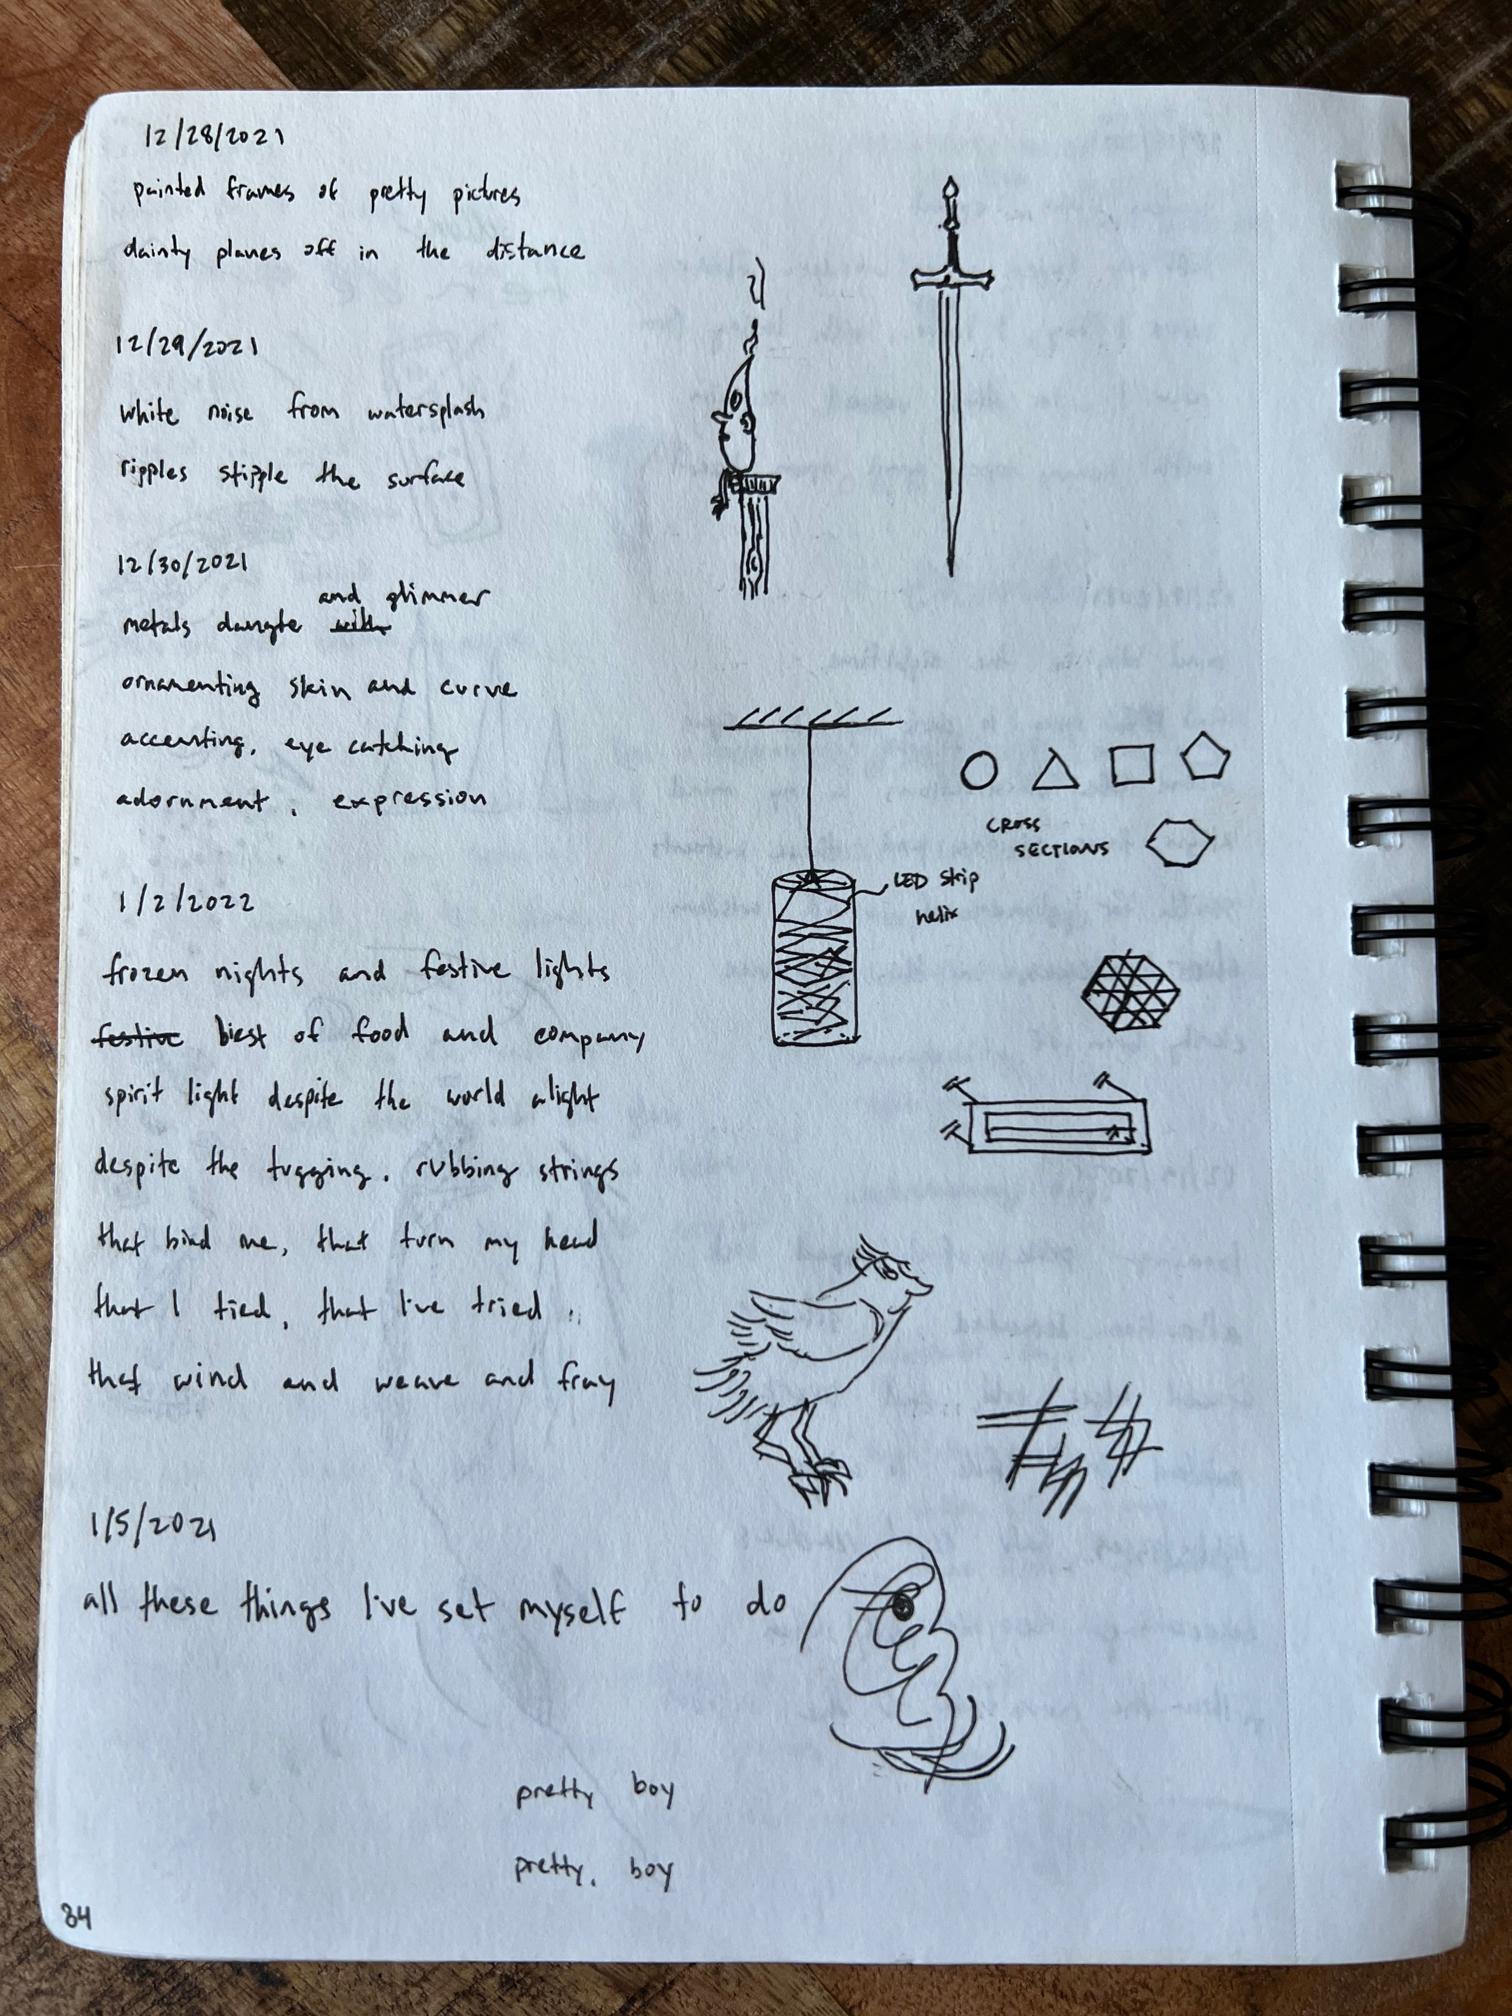 12/28/2021
painted frames of pretty pictures
dainty planes off in the distance
12/29/2021
white noise from watersplash
ripples stipple the surface
12/30/2021
and glimmer
metals dangle with
ornamenting skin and curve
accenting, eye catching
adornment, expression
CROSS
SECTIONS
LED strip
helix
1/2/2022
frozen nights and festive lights
festive biest of food and company
spirit light despite the world alight
despite the tugging, rubbing strings
that bind me, that turn my head
that I tied, that I've tried
that wind and weave and fray
1/5/2021
all these things I've set myself to do
pretty boy
pretty, boy
84